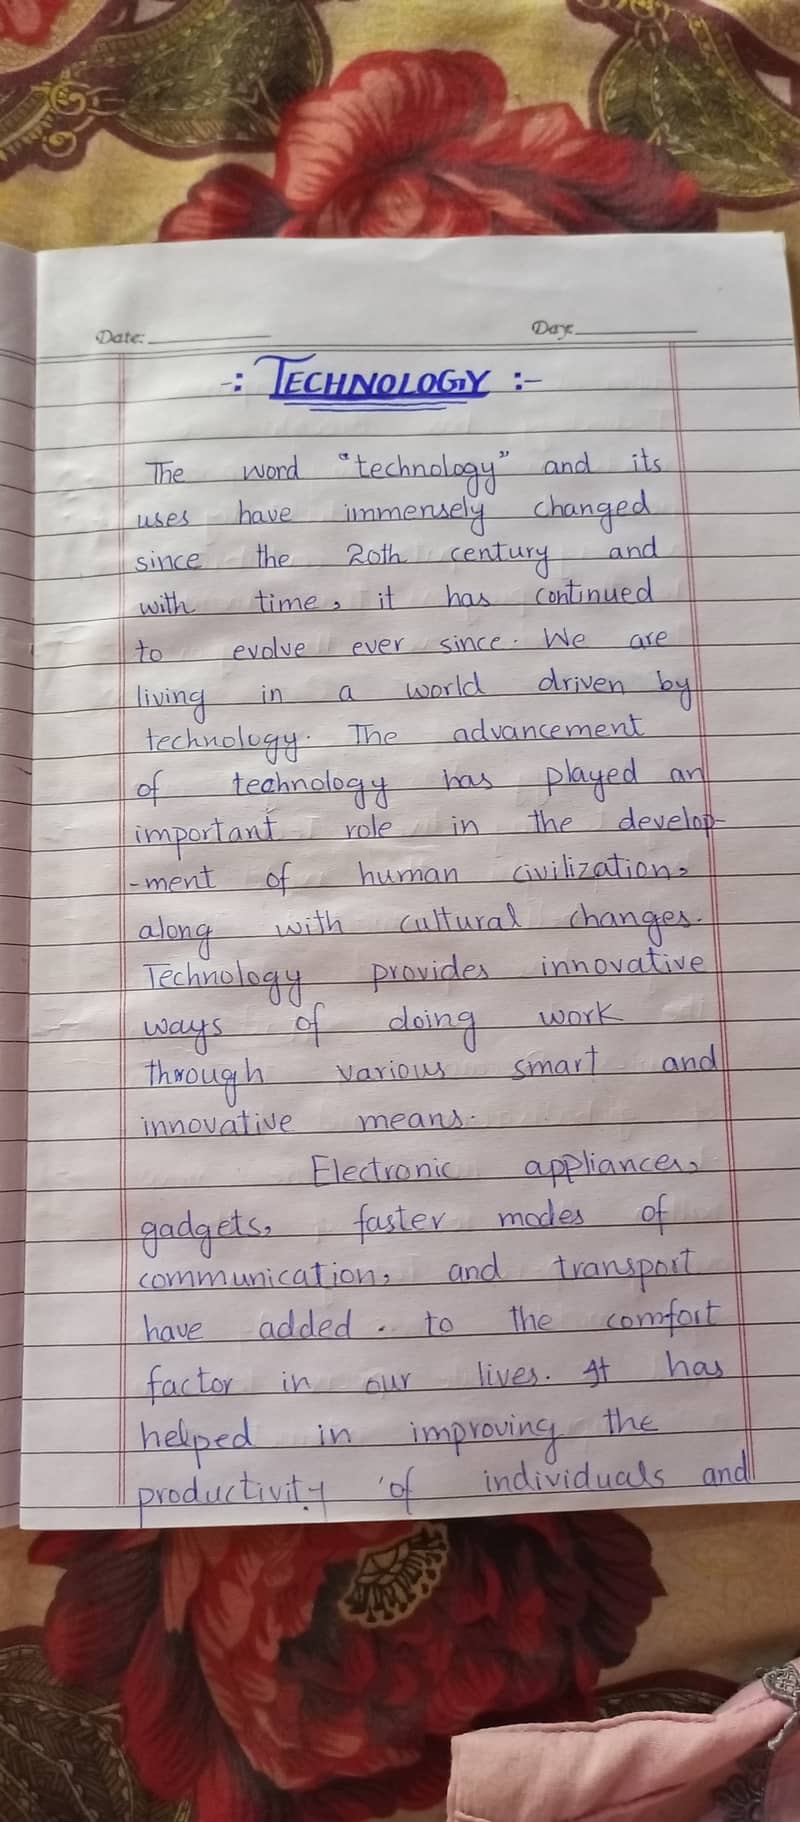 Date: Day:
-: TECHNOLOGY :-
The word "technology" and its
uses have immensely changed
since the 20th century and
with time, it has continued
to evolve ever since. We are
living in a world driven by
technology. The advancement
of technology has played an
important role in the develop-
-ment of human civilization,
along with cultural changes.
Technology provides innovative
ways of doing work
through various smart and
innovative means.
Electronic appliances,
gadgets, faster modes of
communication, and transport
have added . to the comfort
factor in our lives. It has
helped in improving the
productivity of individuals and